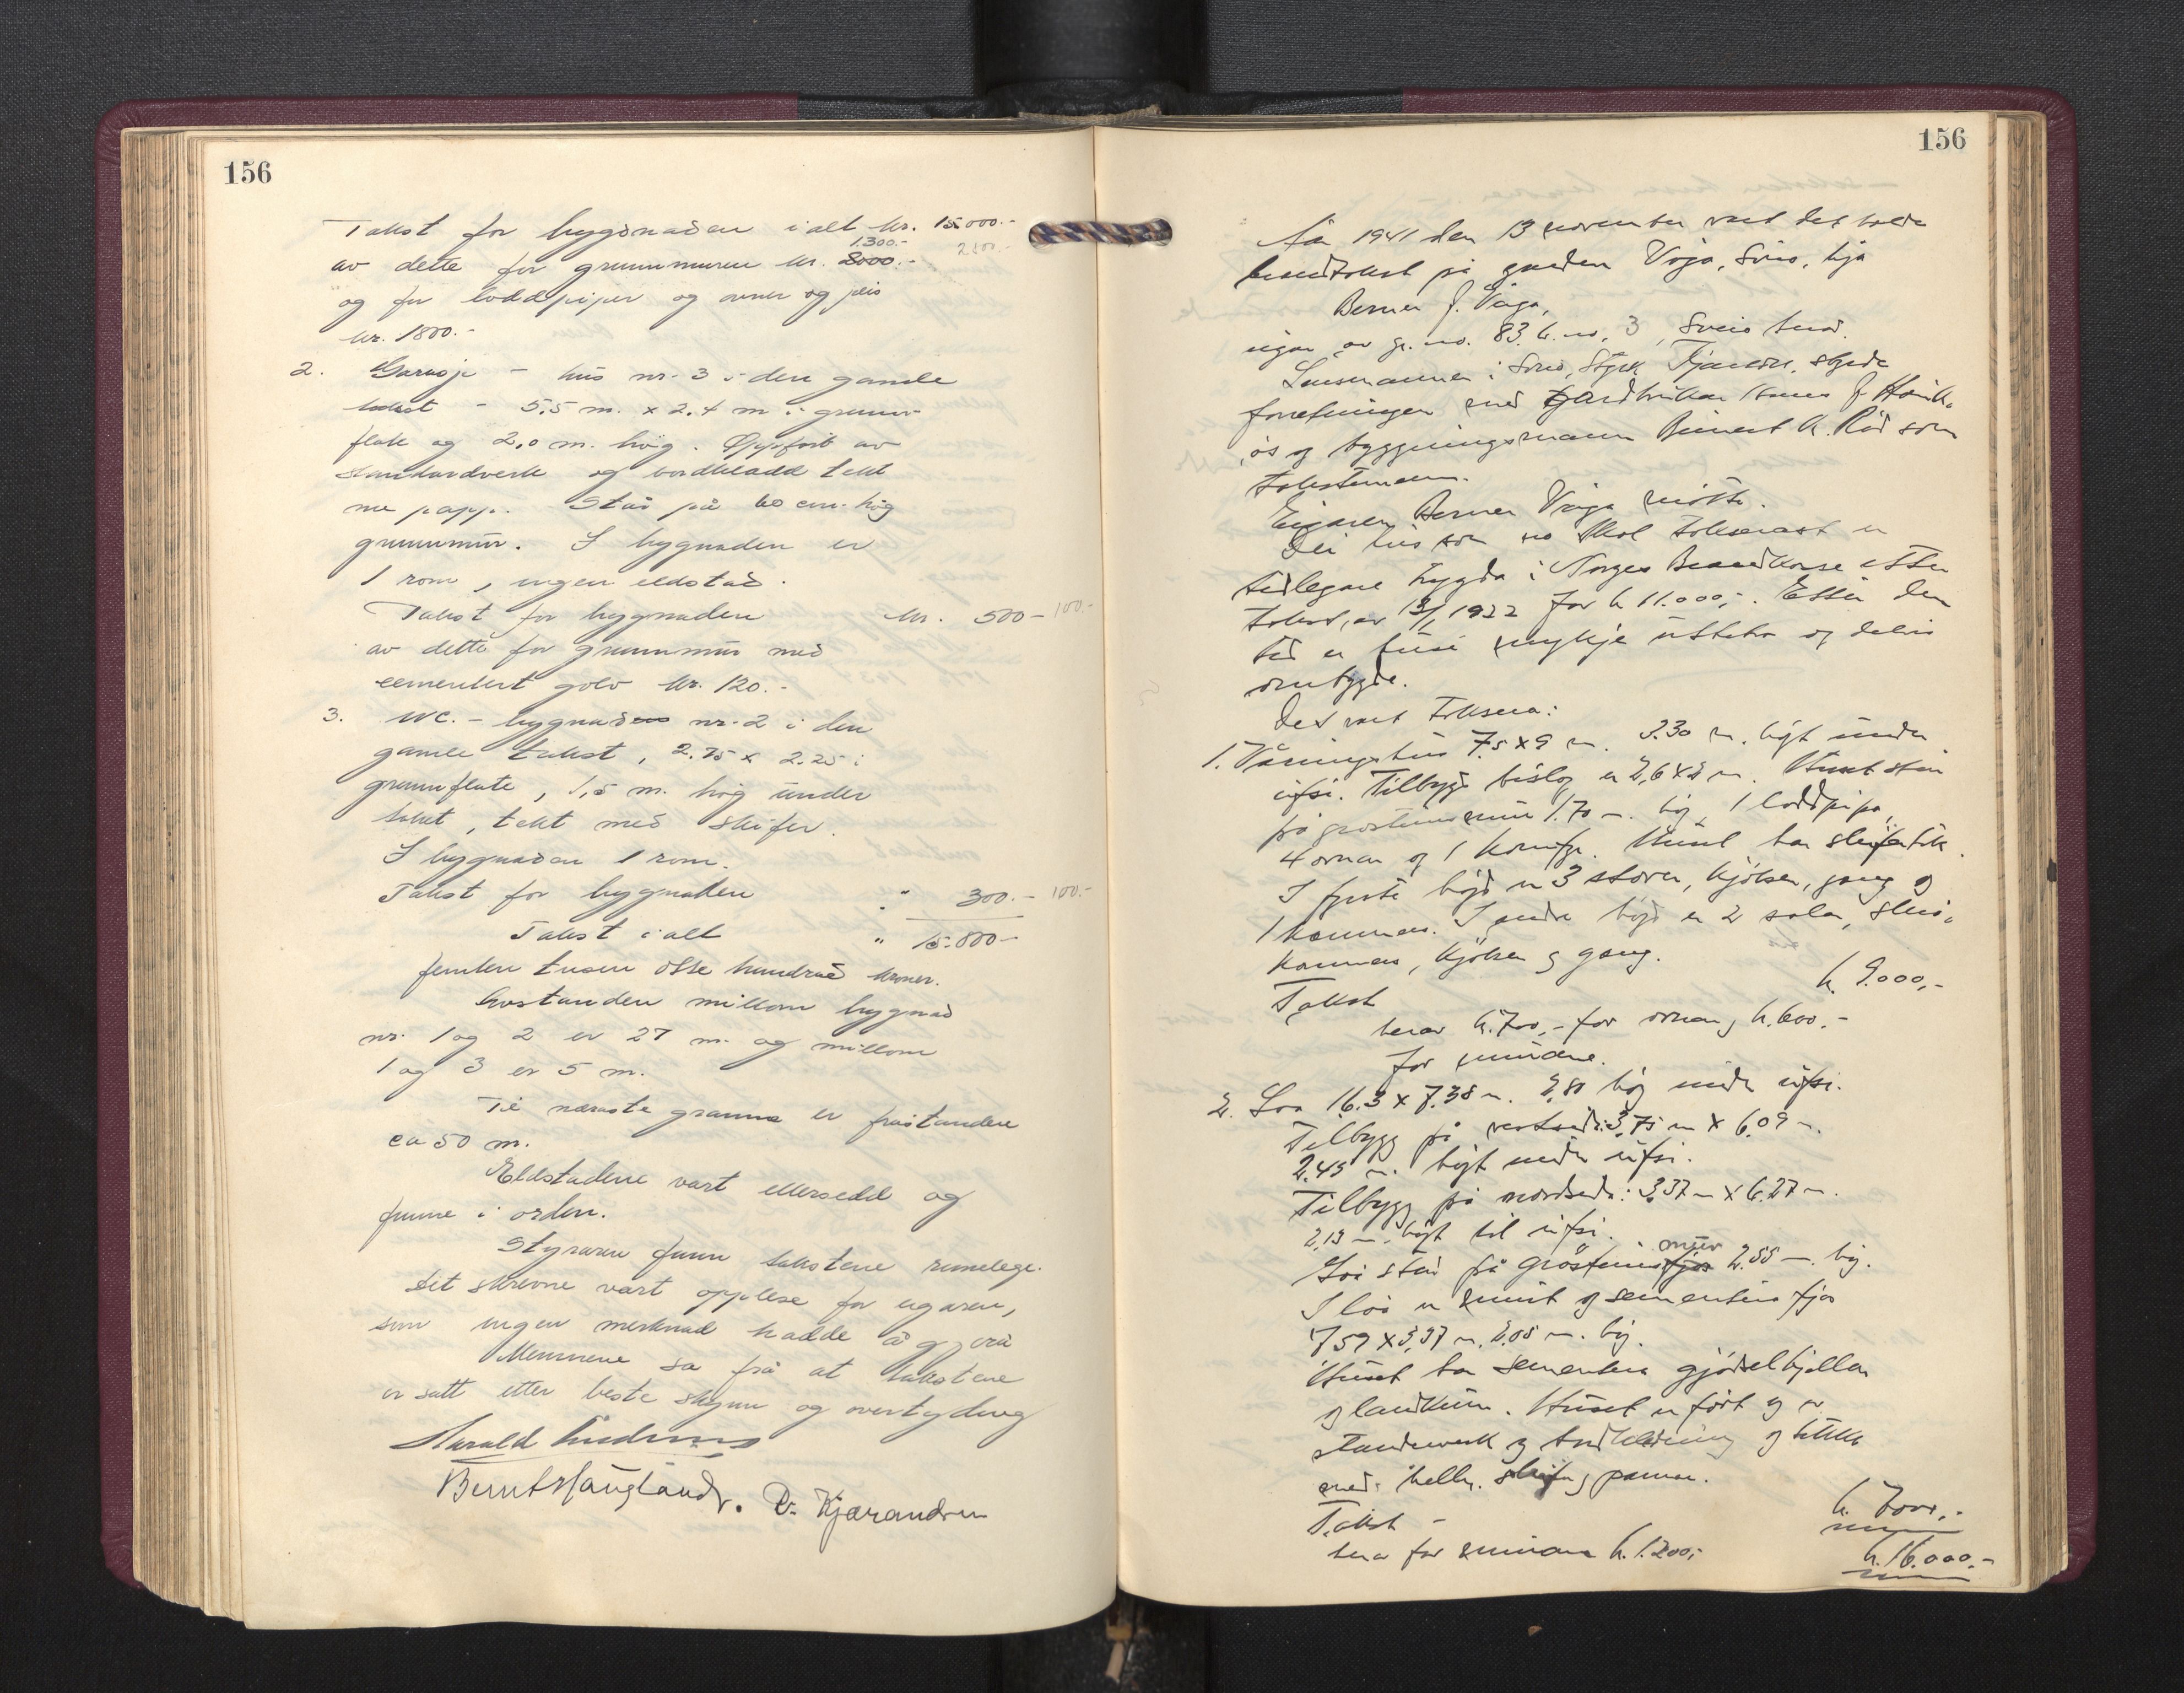 156
Takst for bygdnaden i alt kr. 15.000.-
1.300.- 2800.-
av dette for grunnmuren kr. 8000.-
og for loddpiper og ovner og peis
kr. 1800.-
2. Garasje - hus nr. 3 i den gamle
takst - 5.5 m. x 2.4 m i grunn-
flate og 2,0 m. høg. Oppført av
standardverk og bordkledd tekt
me papp. Står på 60 cm. høg
grunnmur. I bygnaden er
1 rom, ingen eldstad.
Takst for bygnaden kr. 500- 100.-
av dette for grunnmur med
cementert golv kr. 120.-
3. WC. - bygnad nr. 2 i den
gamle takst, 2.75 x 2.25 i
grunnflate, 1,5 m. høg under
taket, tekt med skifer.
I bygnaden 1 rom.
Takst for bygnaden " 300.- 100.-
Takst i alt " 15.800-
femten tusen åtte hundrad kroner.
Avstanden millom bygnad
nr. 1 og 2 er 27 m. og millom
1 og 3 er 5 m.
Til næraste granne er fråstanden
ca 50 m.
Eldstadene vart ettersedd og
funne i orden.
Styraren fann takstene rimelege.
Det skrevne vart opplese for eigaren,
som ingen merknad hadde å gjera
Mennene sa frå at takstene
er satt etter beste skjønn og overtyding
Harald
Bernt Haugland. D. Kjærandsen
156
År 1941 den 13 november vart det halde
brandtakst på garden Våga, Sveio, hjå
Berner J. Våga,
eigar av gr. no. 83. b. no. 3, Sveio herad.
Lensmannen i Sveio, Styrk Tjernes, styrde
forretningen med gardbrukar J. Hauk-
ås og byggningsmann Bernert K. Rød som
takstmenn.
Eigaren Berner Våga møtte.
Dei hus som no skal takserast er
tidlegare trygda i Norges Brandkasse etter
takst av 13/1 1922 for kr 11.000,-. Etter den
tid er husi mykje utbetra og delvis
ombygde.
Det vart taksera:
1. Våningshus 7.5 x 9 m. 3.30 m. høgt under
ufsi. Tilbygd bislag er 2,6 x 2 m. Huset står
på gråsteinsmur 1.70 m. høg, 1 loddpipa,
4 omnar og 1 komfyr. Huset har skifertak.
I fyrste høgd er 3 stover, kjøken, gang og
1 kammers. I andre høgd er 2 salar, 
kammers, kjøken og gang.
Takst kr. 9.000,-
herav kr. 700,- for omnar, kr. 600.-
for murane.
2. Loa 16.3 x 7.38 m. 2,80 høg under ufsi.
Tilbygg på vestsida: 3,75 m x 6,09 m.
2.45 m. høgt under ufsi.
Tilbygg på nordsida: 3,37 m x 6.27 m.
2,13 m. høgt til ufsi.
mur
Loa står på gråsteins 2.55 m. høg.
I loa er mura og sementera fjos
7.59 x 5,37 m. 2,05 m. høg.
Huset har sementera gjødselkjellar
og landkum. Huset er ført og av
standerverk og bordkledning og tekke
med heller, skifer og pannor.
Takst - kr. 7000,-
herav for murane kr. 1.200,-
kr. 16.000.-